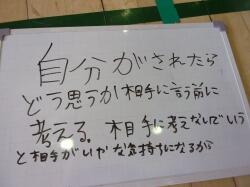 自分がされたら
どう思うか相手に言う前に
考える。相手に考えないでいう
と相手がいやな気持ちになるから